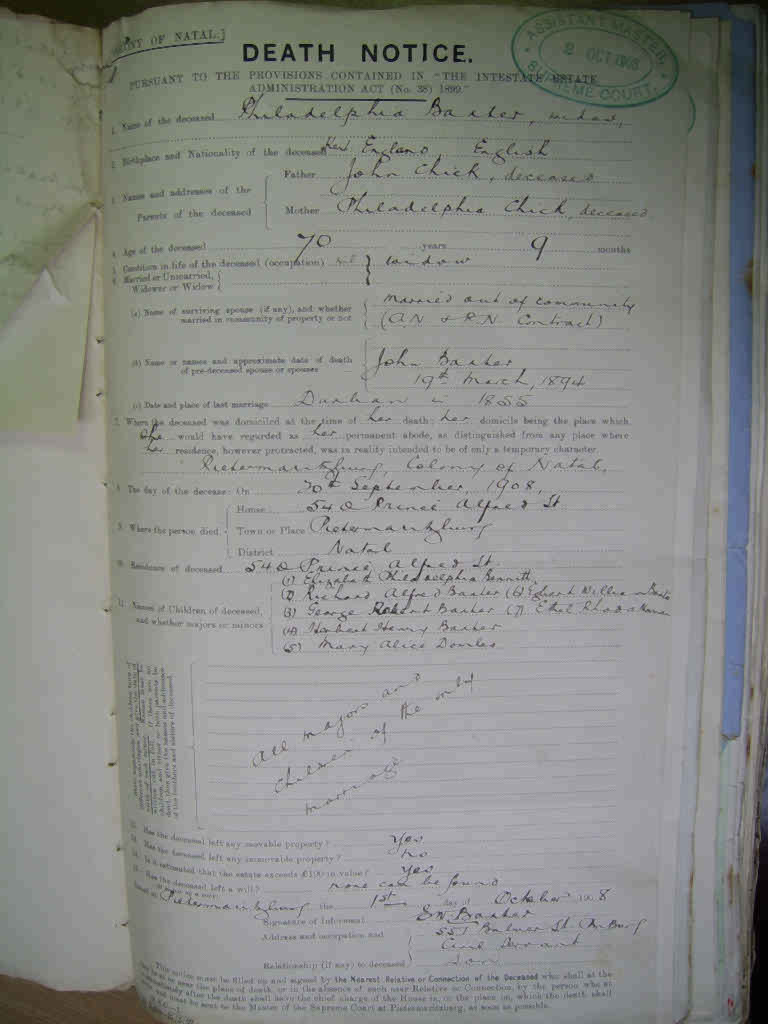 OF NATAL.]
DEATH NOTICE.
ASSISTANT MASTER,
2 OCT 1908
SUPREME COURT.
PURSUANT TO THE PROVISIONS CONTAINED IN "THE INTESTATE ESTATE
ADMINISTRATION ACT (No. 38) 1899."
1. Name of the deceased Philadelphia Baxter, widow,
2. Birthplace and Nationality of the deceased England, English
3. Names and addresses of the Parents of the deceased
Father John Chick, deceased
Mother Philadelphia Chick, deceased
4. Age of the deceased 70 years 9 months
5. Condition in life of the deceased (occupation) nil
6. Married or Unmarried, Widower or Widow widow
(a) Name of surviving spouse (if any), and whether married in community of property or not
Married out of community
(A.N. & R.N. Contract)
(b) Name or names and approximate date of death of pre-deceased spouse or spouses
John Baxter
19th March, 1894
(c) Date and place of last marriage Durban in 1855
7. Where the deceased was domiciled at the time of her death; her domicile being the place which
she would have regarded as her permanent abode, as distinguished from any place where
her residence, however protracted, was in reality intended to be only of a temporary character.
Pietermaritzburg, Colony of Natal,
8. The day of the decease: On 30th September, 1908,
9. Where the person died
House 540 Prince Alfred St
Town or Place Pietermaritzburg
District Natal
10. Residence of deceased 540 Prince Alfred St.
11. Names of Children of deceased, and whether majors or minors
(1) Elizabeth Philadelphia Bennett,
(2) Richard Alfred Baxter (6) Egbert William Baxter
(3) George Robert Baxter (7) Ethel Rhoda
(4) Herbert Henry Baxter
(5) Mary Alice
All majors and
children of the only
marriage
Has the deceased left any movable property? Yes
Has the deceased left any immovable property? no
Is it estimated that the estate exceeds £100 in value? yes
Has the deceased left a will? none can be found
Dated at Pietermaritzburg the 1st day of October 1908
Signature of Informant E W Baxter
Address and occupation and 551 Bulwer St PMBurg
Civil Servant
Relationship (if any) to deceased Son
This notice must be filled up and signed by the Nearest Relative or Connection of the Deceased who shall at the
be at or near the place of death, or in the absence of such near Relative or Connection, by the person who at
immediately after the death shall have the chief charge of the House in, or the place on, which the death shall
and must be sent to the Master of the Supreme Court at Pietermaritzburg, as soon as possible.